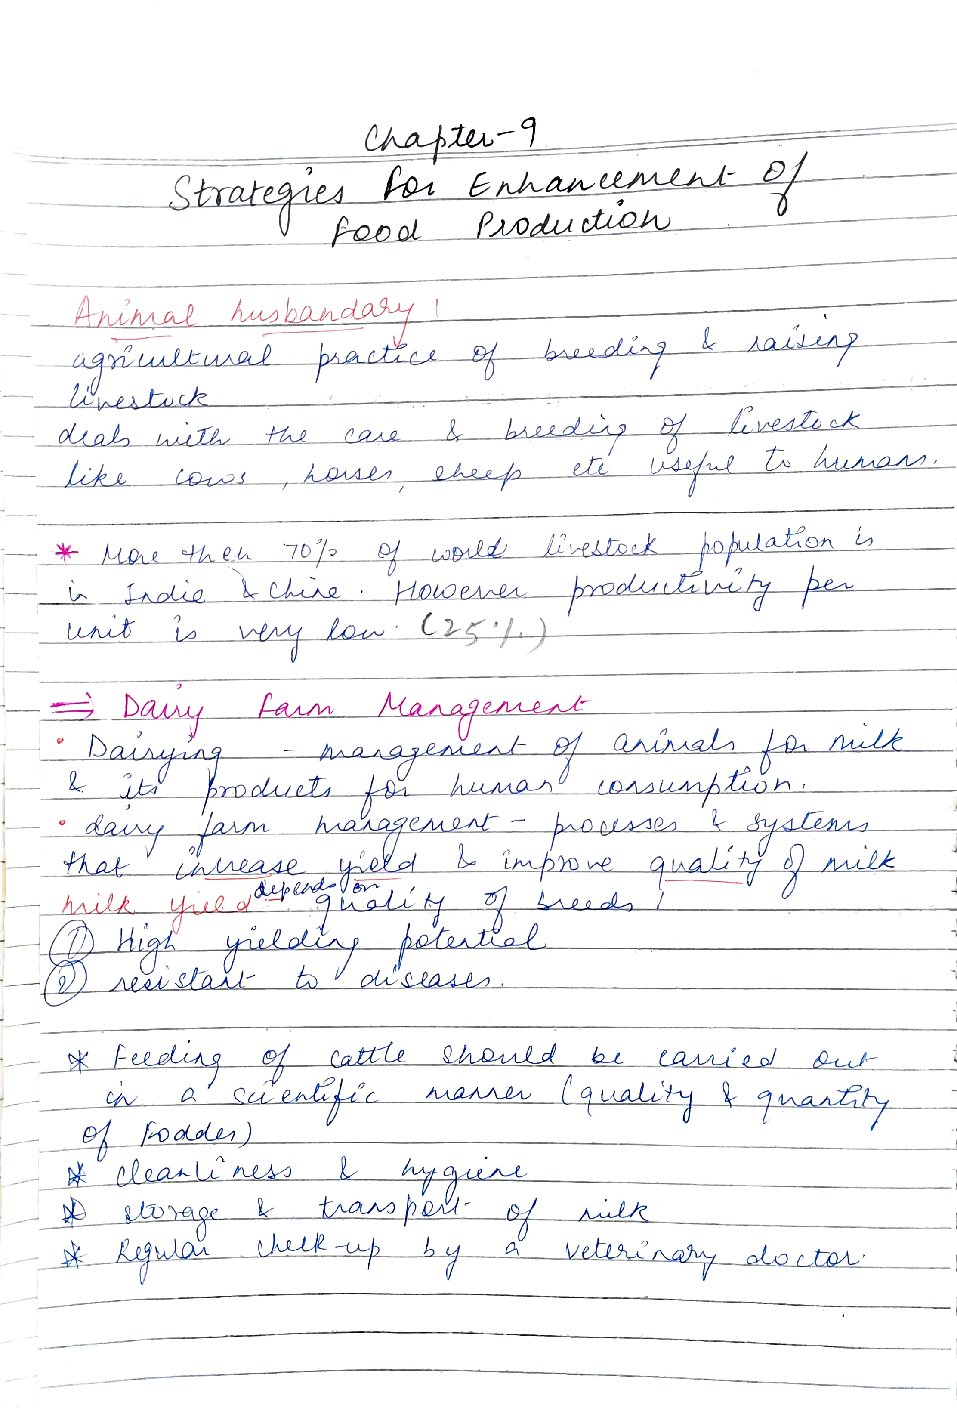 Chapter-9
Strategies for Enhancement of
Food Production
Animal husbandary !
agricultural practice of breeding & raising
livestock
deals with the care & breeding of livestock
like cows, horses, sheep etc useful to humans.
* More then 70% of world livestock population is
in India & China. However productivity per
unit is very low. (25%)
⇒ Dairy Farm Management
• Dairying - management of animals for milk
& its products for human consumption.
• dairy farm management - processes & systems
that increase yield & improve quality of milk
milk yield depends on quality of breeds !
① High yielding potential
② resistant to diseases.
* Feeding of cattle should be carried out
in a scientific manner (quality & quantity
of fodder)
* cleanliness & hygiene
* storage & transport of milk
* Regular check-up by a veterinary doctor.